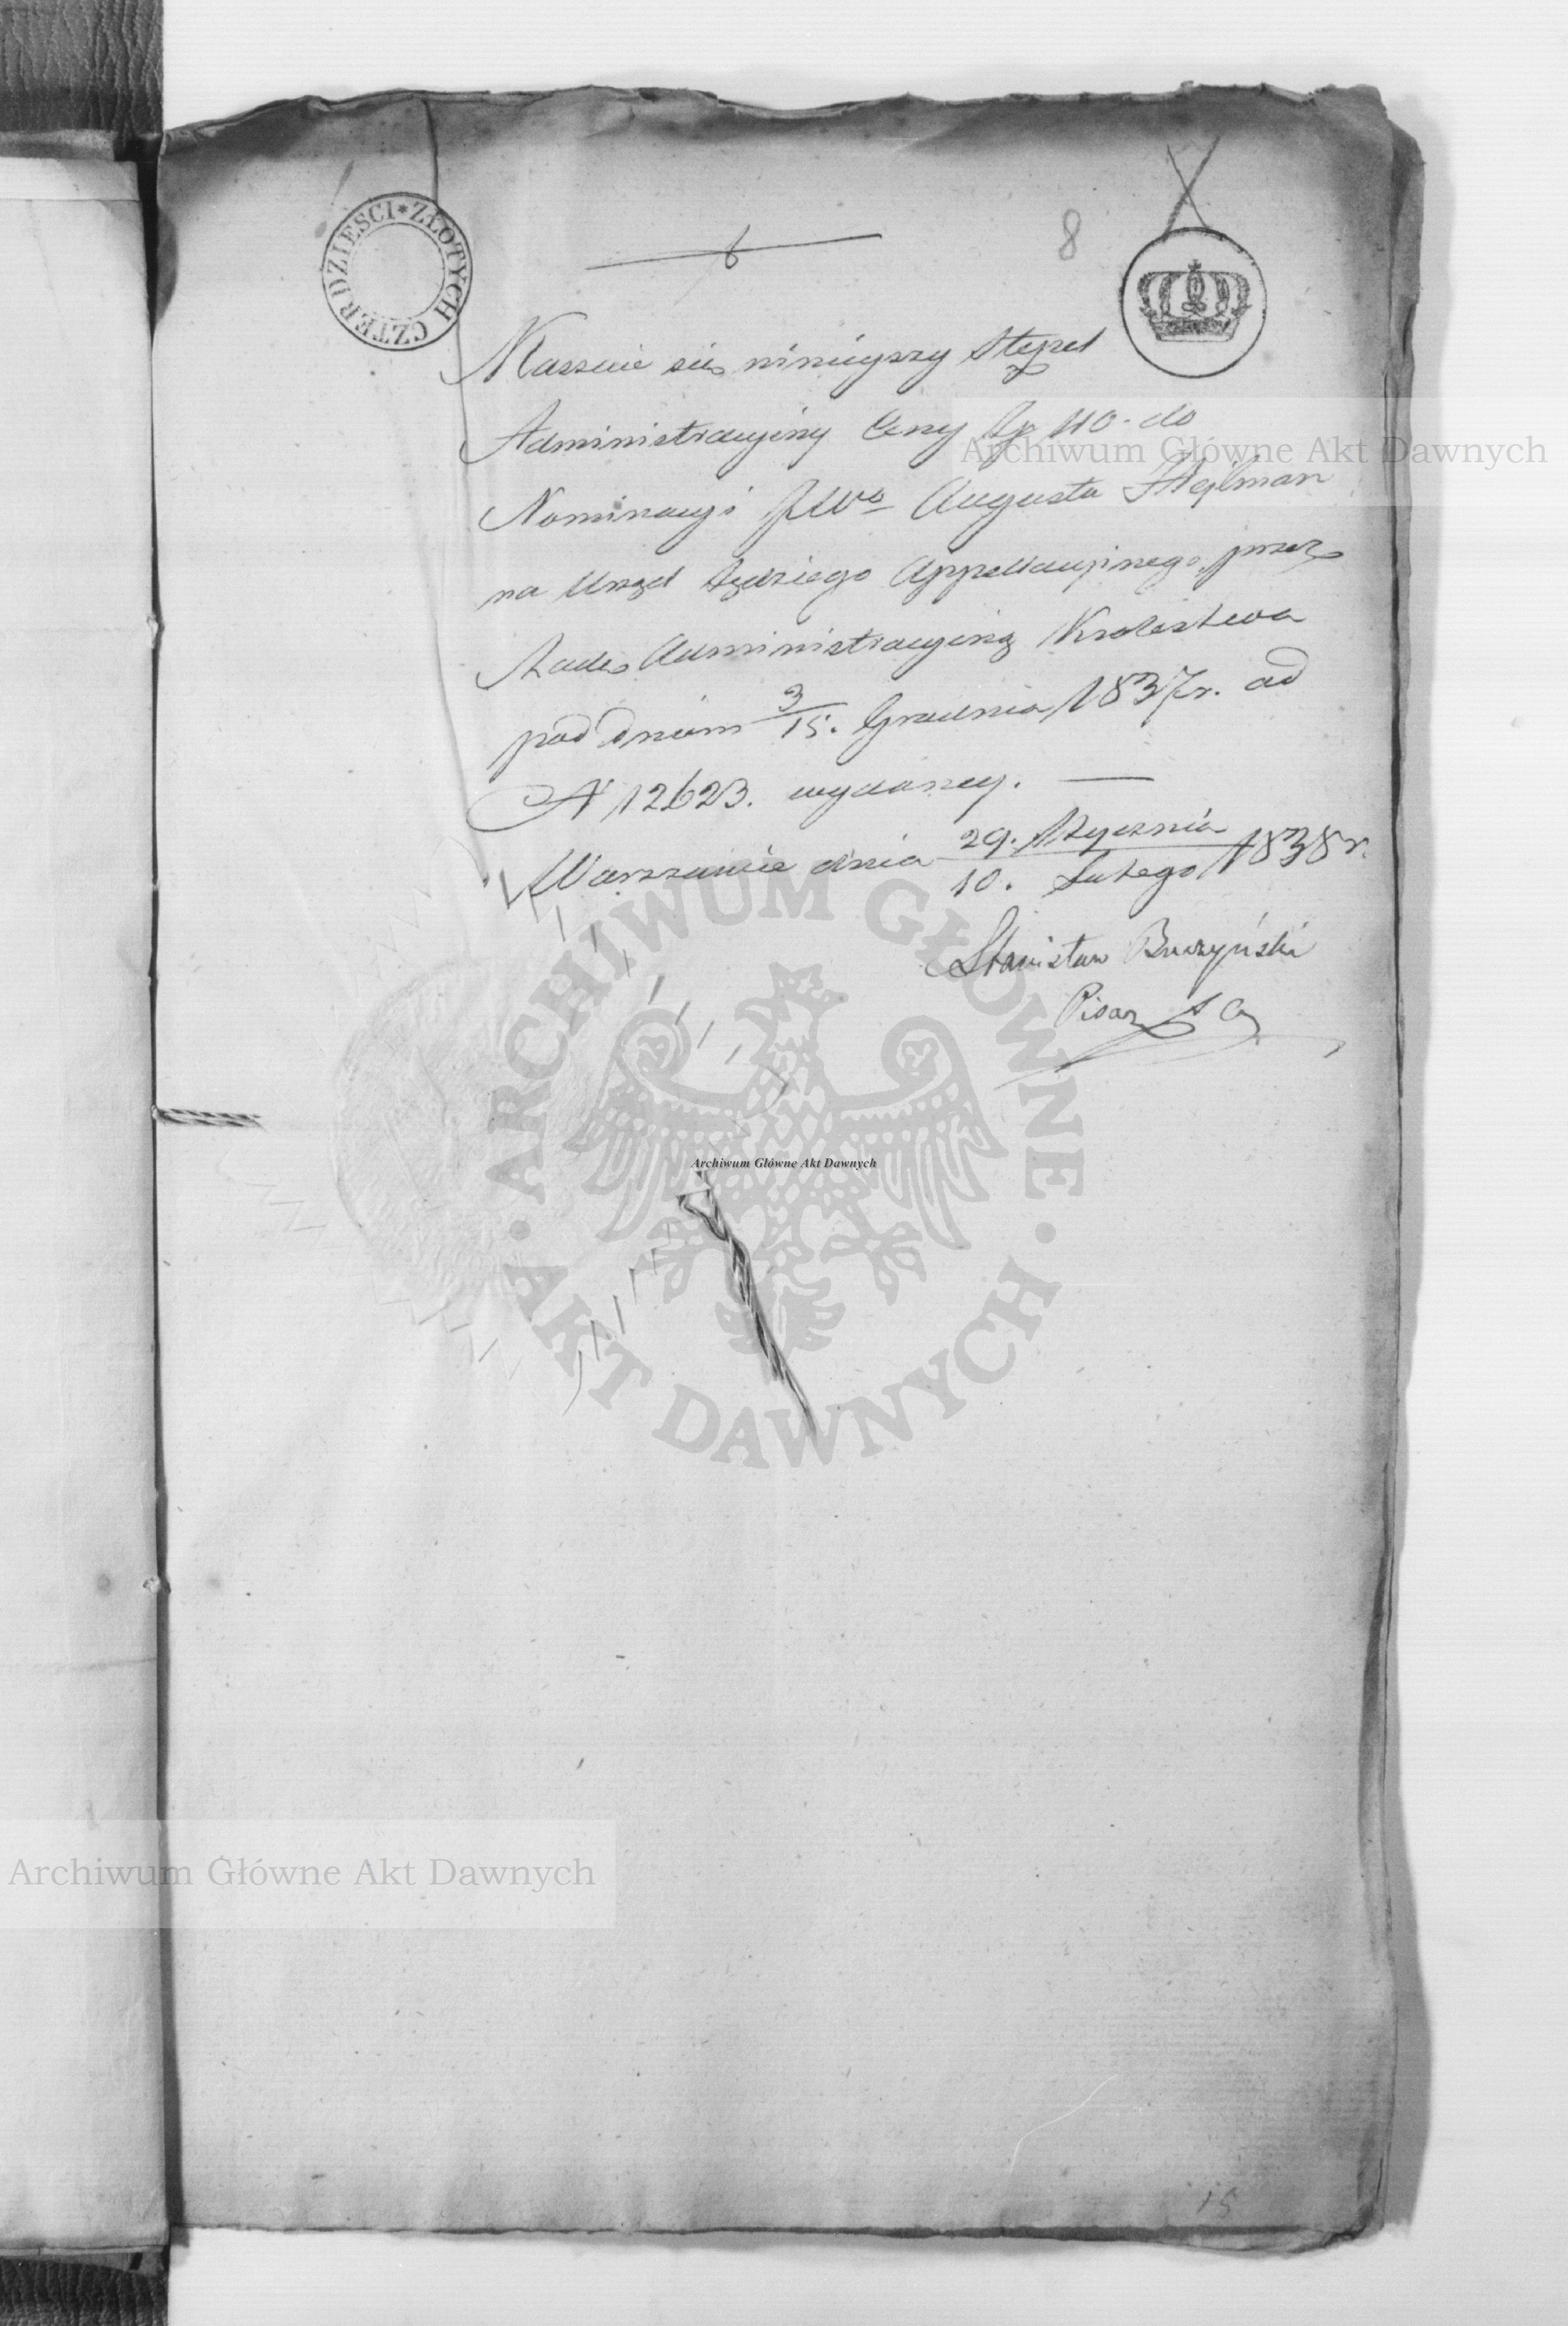 ZŁOTYCH CZTERDZIESCI
6
8
Kassuie się ninieyszy Stępel
Administracyiny Ceny Zp 40. do
Nominacyi JWo Augusta Heylman
na Urząd Sędziego Appellacyinego przez
Radę Administracyiną Krolestwa
pod dniem 3/15. Grudnia 1837 r. ad
N 12623. wydaney. —
w Warszawie dnia 29. Stycznia / 10. Lutego 1838 r.
Stanisław
Pisarz S A
Archiwum Główne Akt Dawnych
ARCHIWUM GŁÓWNE
AKT DAWNYCH
Archiwum Główne Akt Dawnych
Archiwum Główne Akt Dawnych
15